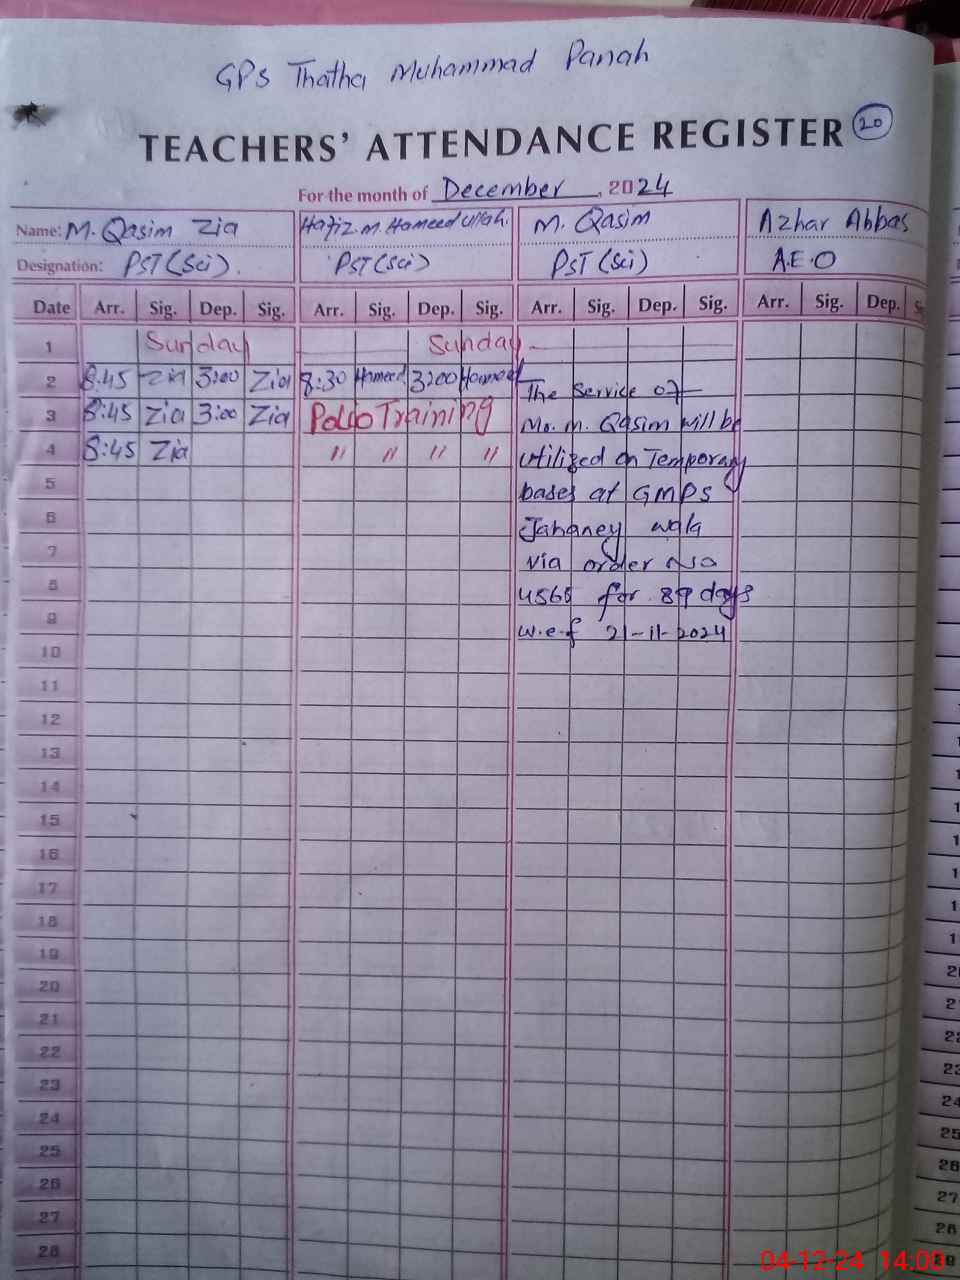 GPS Thatha Muhammad Panah
TEACHERS' ATTENDANCE REGISTER 20
For the month of December, 2024
Name: M. Qasim Zia Hafiz. M. Hameed Ullah. M. Qasim Azhar Abbas
Designation: PST (Sci). PST (Sci) PST (Sci) A.E.O
Date Arr. Sig. Dep. Sig. Arr. Sig. Dep. Sig. Arr. Sig. Dep. Sig. Arr. Sig. Dep.
1 Sunday Sunday
2 8:45 Zia 3:00 Zia 8:30 Hameed 3:00 Hameed The Service of
3 8:45 Zia 3:00 Zia Polio Training Mo. M. Qasim will be
4 8:45 Zia " " " " utilized on Temporary
5 bases at GMPS
6 Jahaney wala
7 via order No
8 4568 for 89 days
9 w.e.f 21-11-2024
10
11
12
13
14
15
16
17
18
19
20
21
22
23
24
25
26
27
28
04-12-24 14:00